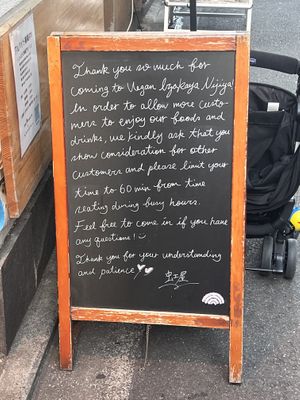 Thank you so much for
coming to Vegan Izakaya Nijiya!
In order to allow more custo-
mers to enjoy our foods and
drinks, we kindly ask that you
show consideration for other
customers and please limit your
time to 60 min from time
seating during busy hours.
Feel free to come in if you have
any questions!
Thank you for your understanding
and patience
虹屋